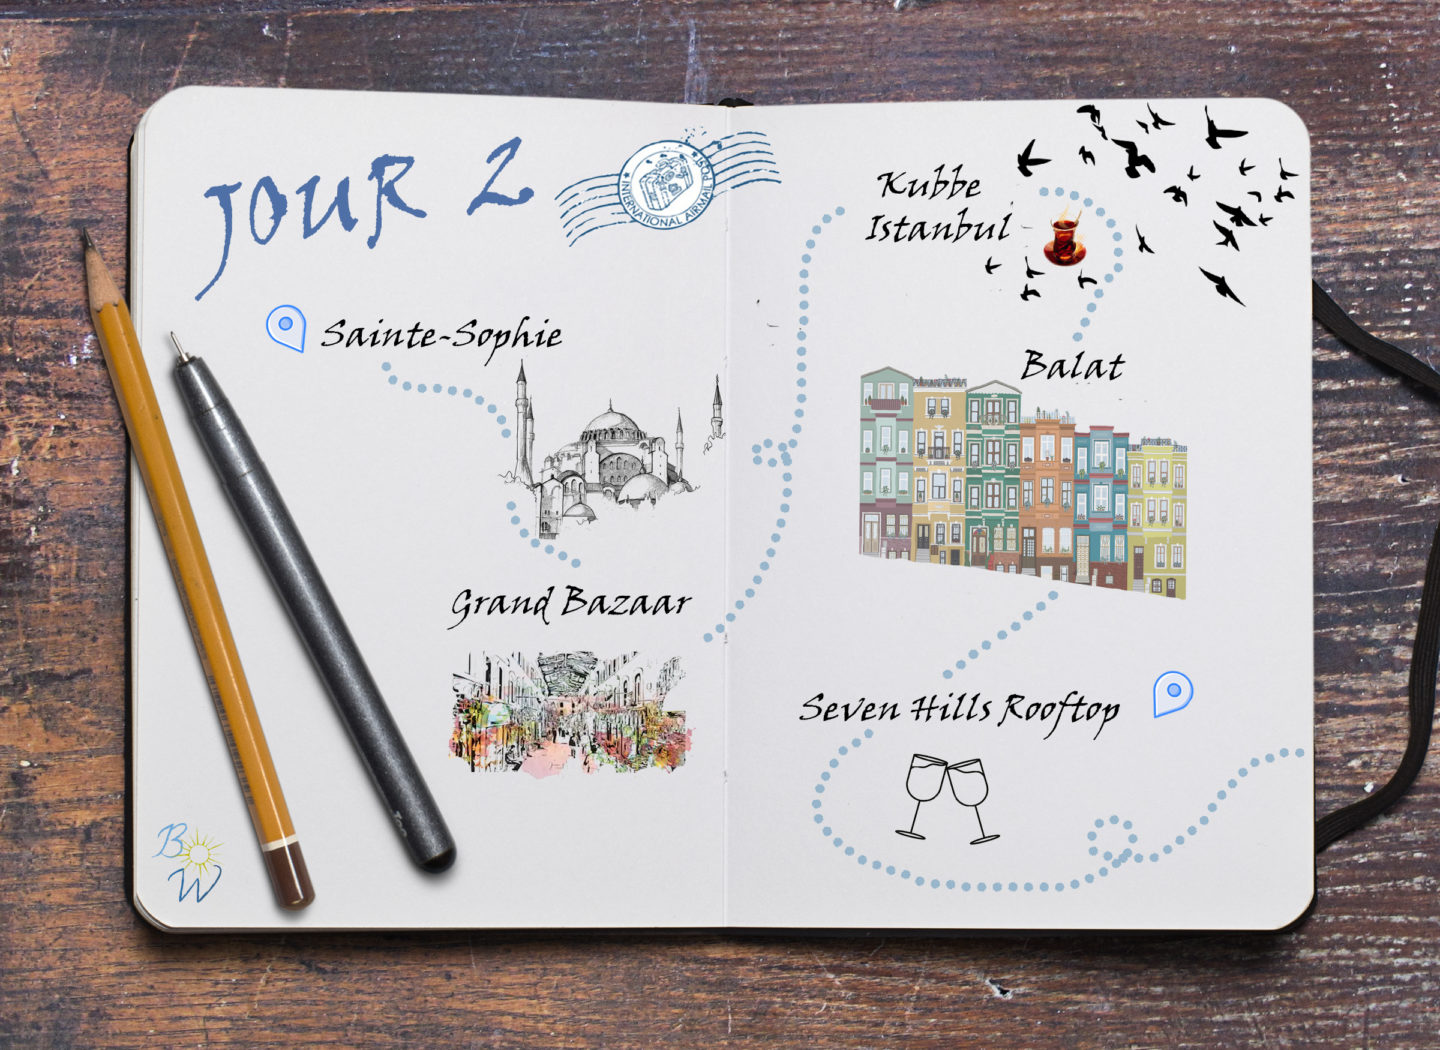 JOUR 2
INTERNATIONAL AIRMAIL POST
Sainte-Sophie
Grand Bazaar
Kubbe
Istanbul
Balat
Seven Hills Rooftop
B
W